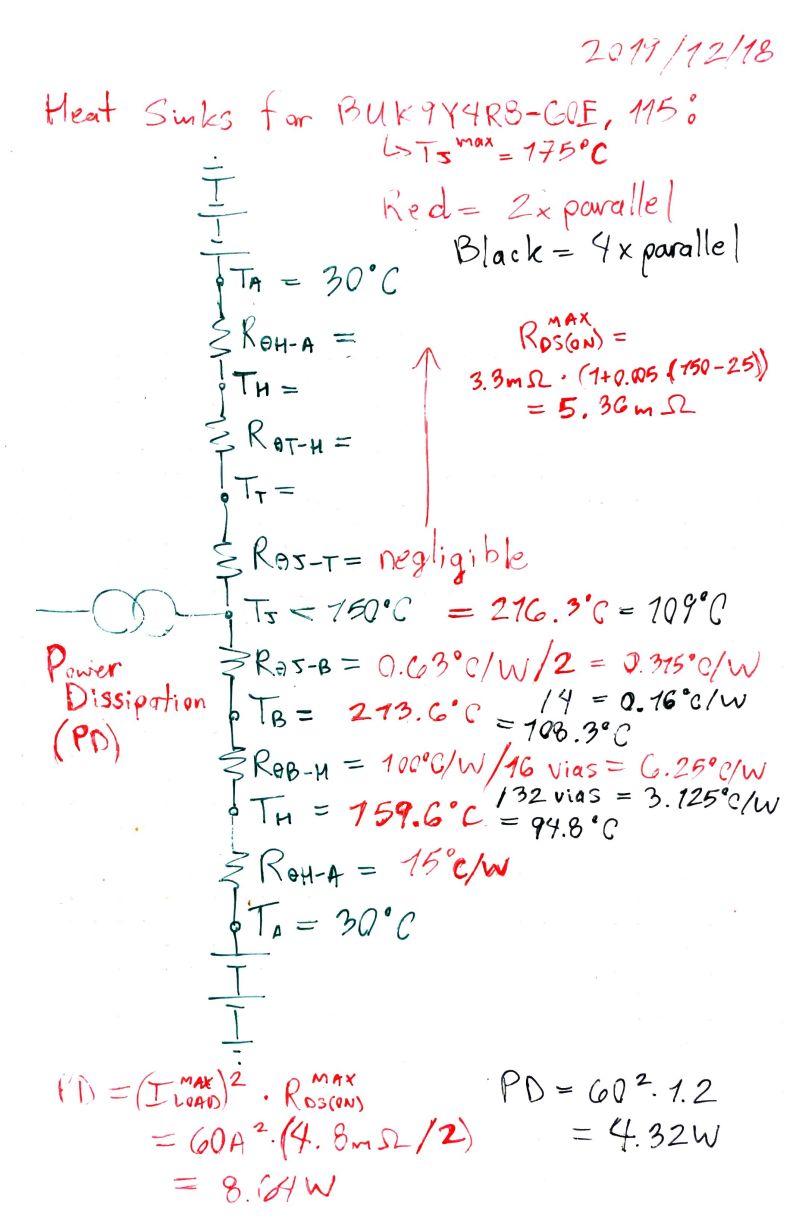 2019/12/18
Heat Sinks for BUK9Y4R8-60E, 115:
↳ TJ max = 175°C
Red = 2x parallel
Black = 4x parallel
TA = 30°C
RθH-A =
TH =
RθT-H =
TT =
RDS(ON) MAX =
3.3mΩ · (1+0.005 (150-25))
= 5.36mΩ
RθJ-T = negligible
TJ < 150°C = 216.3°C = 109°C
Power
Dissipation
(PD)
RθJ-B = 0.63°C/W/2 = 0.315°C/W
/4 = 0.16°C/W
TB = 213.6°C = 108.3°C
RθB-H = 100°C/W/16 vias = 6.25°C/W
/32 vias = 3.125°C/W
TH = 159.6°C = 94.8°C
RθH-A = 15°C/W
TA = 30°C
PD = (I LOAD MAX)² · RDS(ON) MAX
= 60A² · (4.8mΩ/2)
= 8.64W
PD = 60² · 1.2
= 4.32W